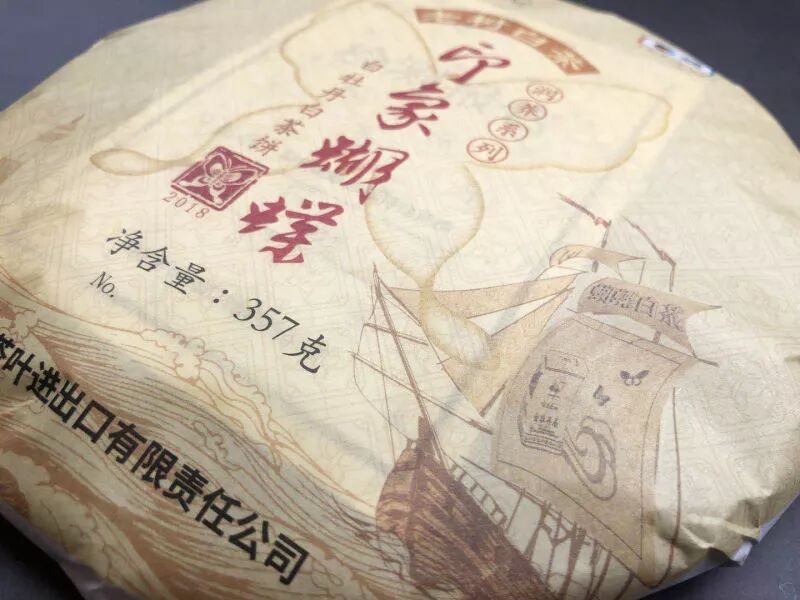 老树白茶
系列
印象蝴蝶
白牡丹白茶饼
2018
净含量：357克
No.
茶叶进出口有限责任公司
白茶